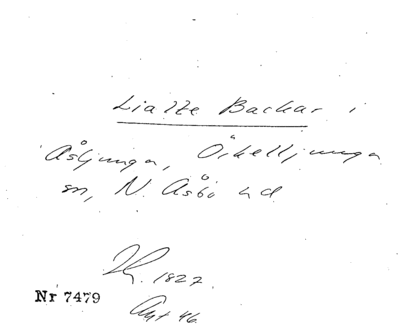 Liatte Backar i
Åsljunga, Örkelljunga
sn, N. Åsbo hd
1827.
Nr 7479
Ant 46